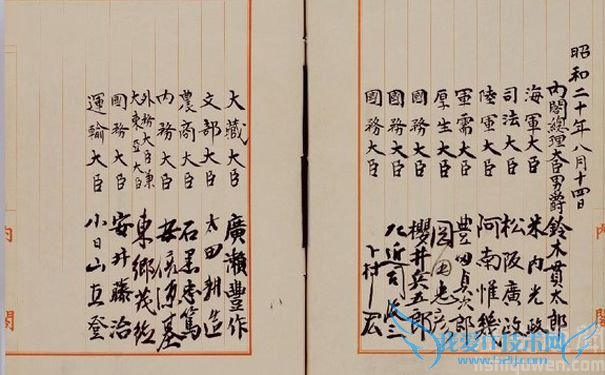 昭和二十年八月十四日
内閣總理大臣男爵 鈴木貫太郎
海軍大臣 米内光政
司法大臣 松阪廣政
陸軍大臣 阿南惟幾
軍需大臣 豊田貞次郎
厚生大臣 岡田忠彦
國務大臣 櫻井兵五郎
國務大臣 左近司政三
國務大臣 下村宏
大藏大臣 廣瀬豊作
文部大臣 太田耕造
農商大臣 石黒忠篤
内務大臣 安倍源基
外務大臣兼
大東亞大臣 東郷茂徳
國務大臣 安井藤治
運輸大臣 小日山直登
内閣
我爱IT技术网
lishiquwen.com